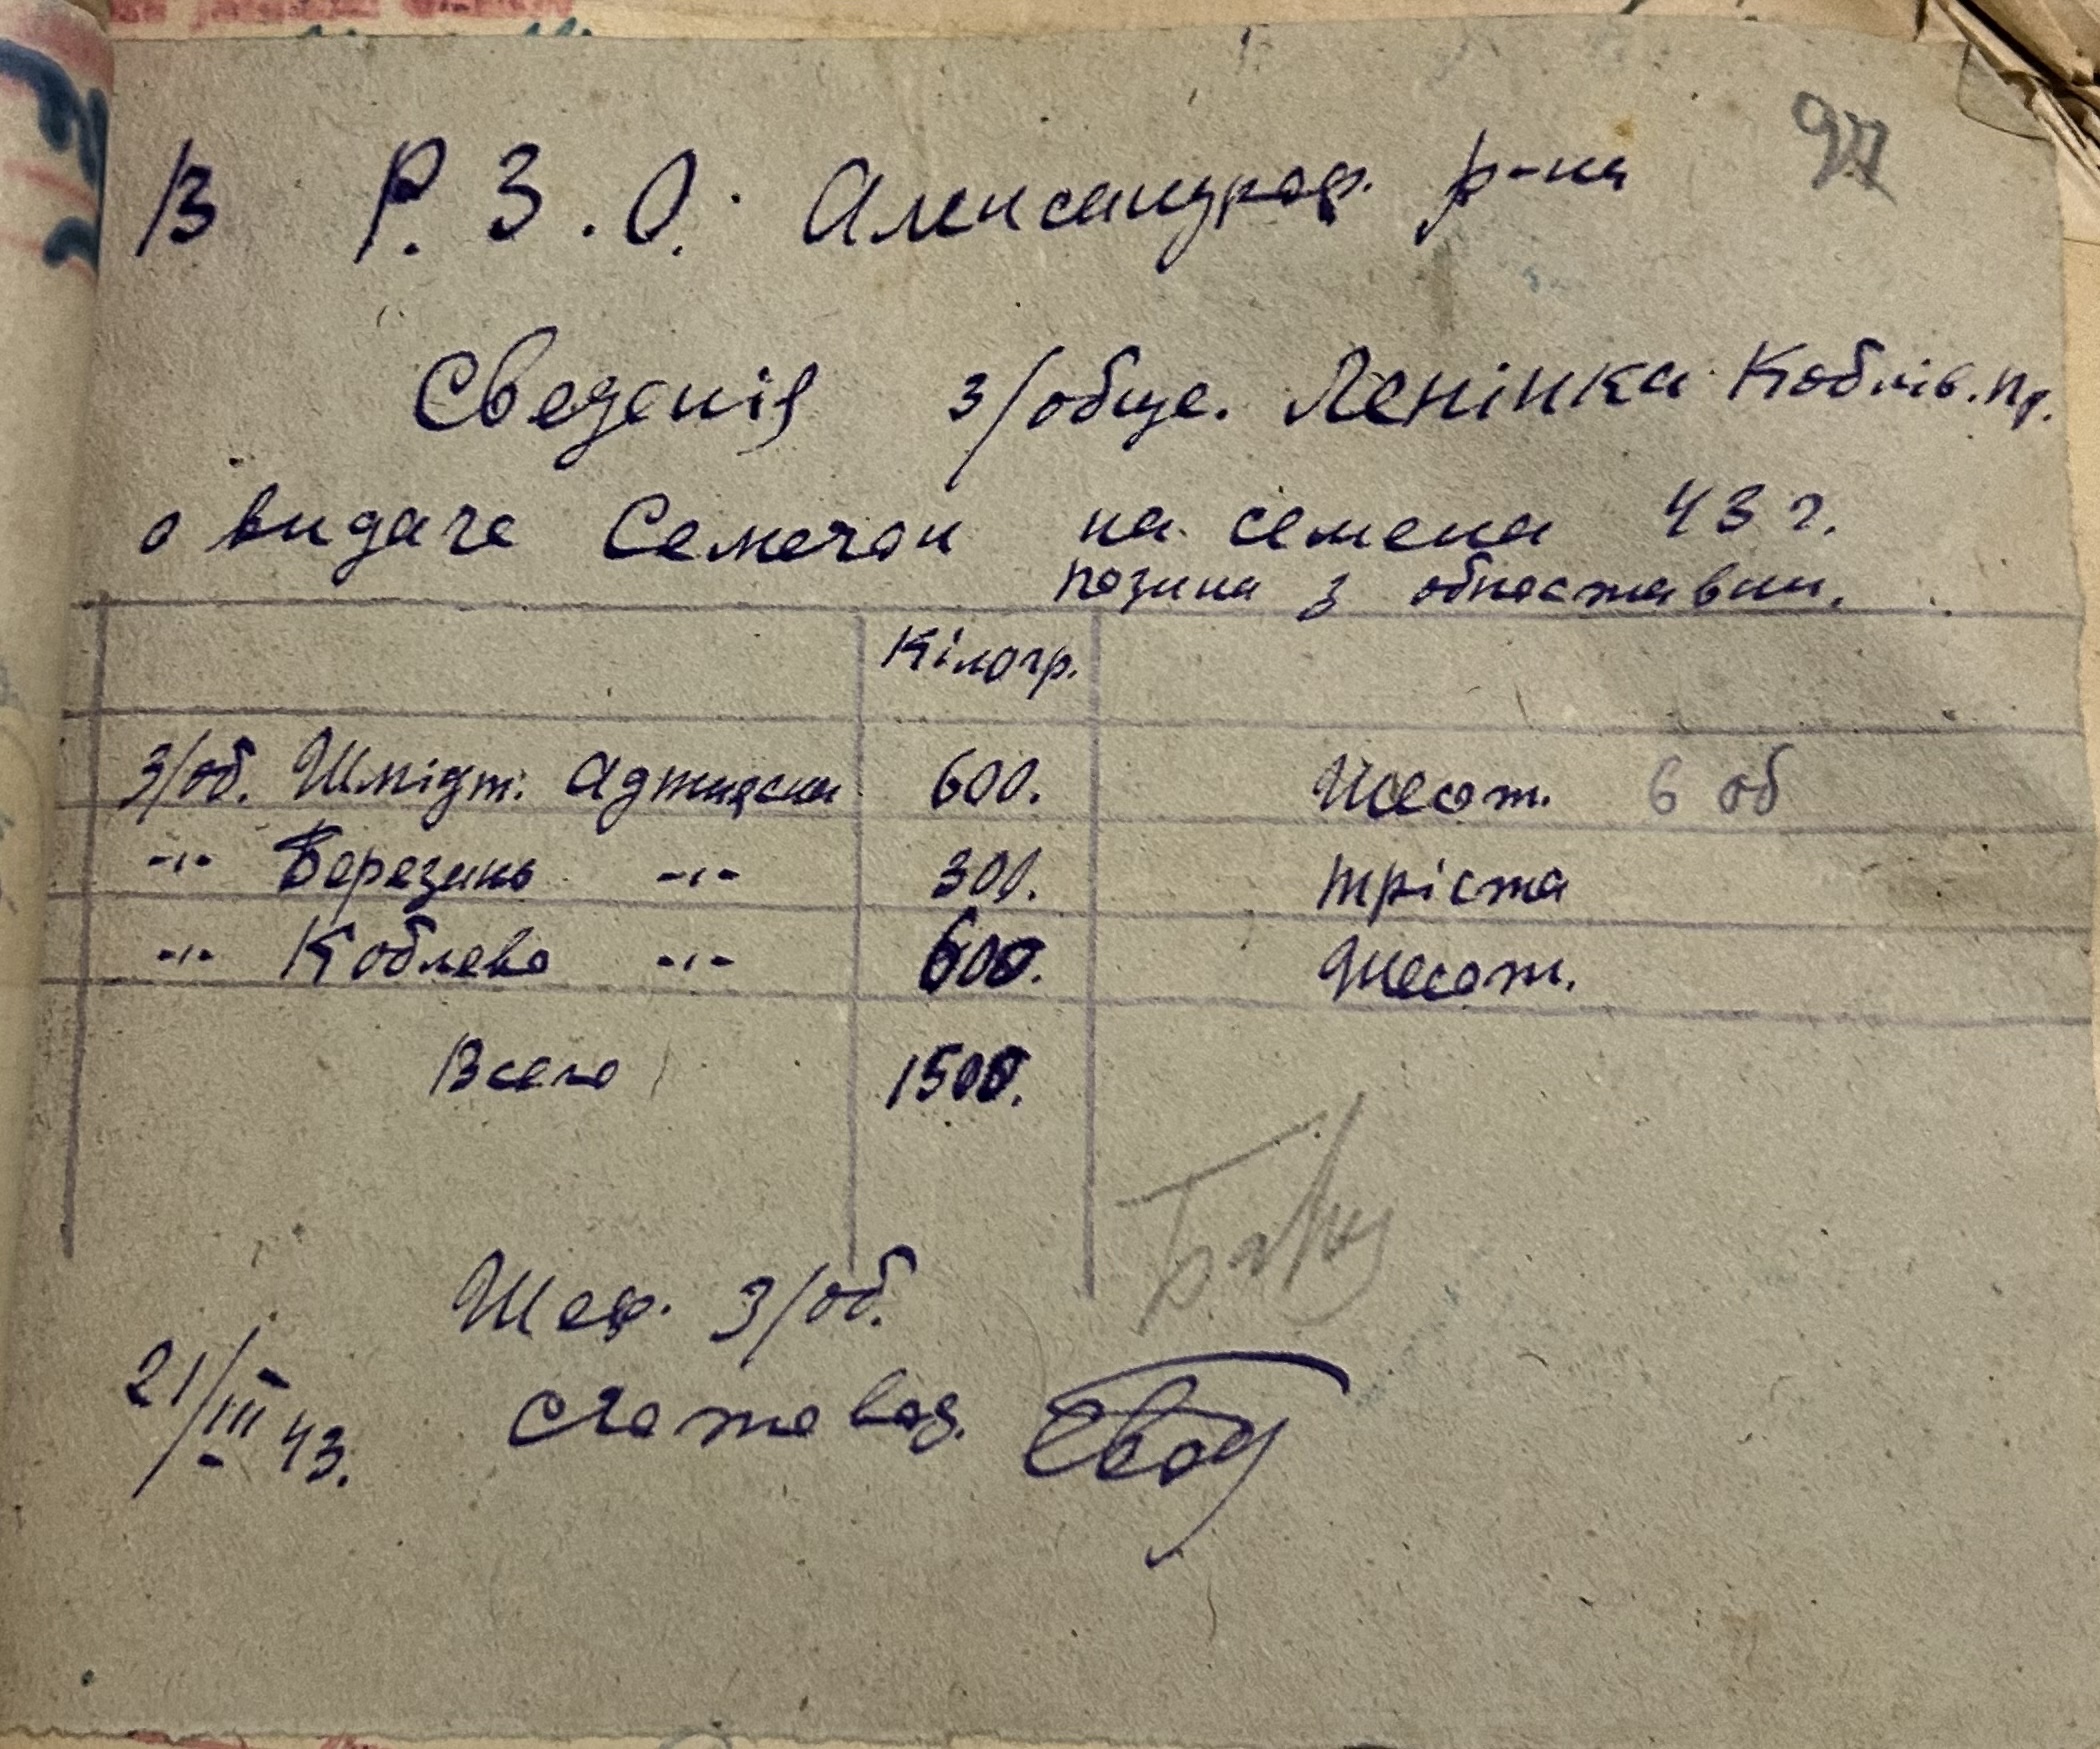 97
В Р.З.О. Александроф. р-на
Сведенія з/обще. Ленінка Коблів. пр.
о видаче Семечок на семена 43 г.
позика з обпоставки.
Кілогр.
З/об. Шмідт. Аджияски 600. Шесот. 6 об
-"- Березань -"- 300. тріста
-"- Коблево -"- 600. Шесот.
Всего 1500.
Шеф. З/об.
21/III 43. Счетовод.